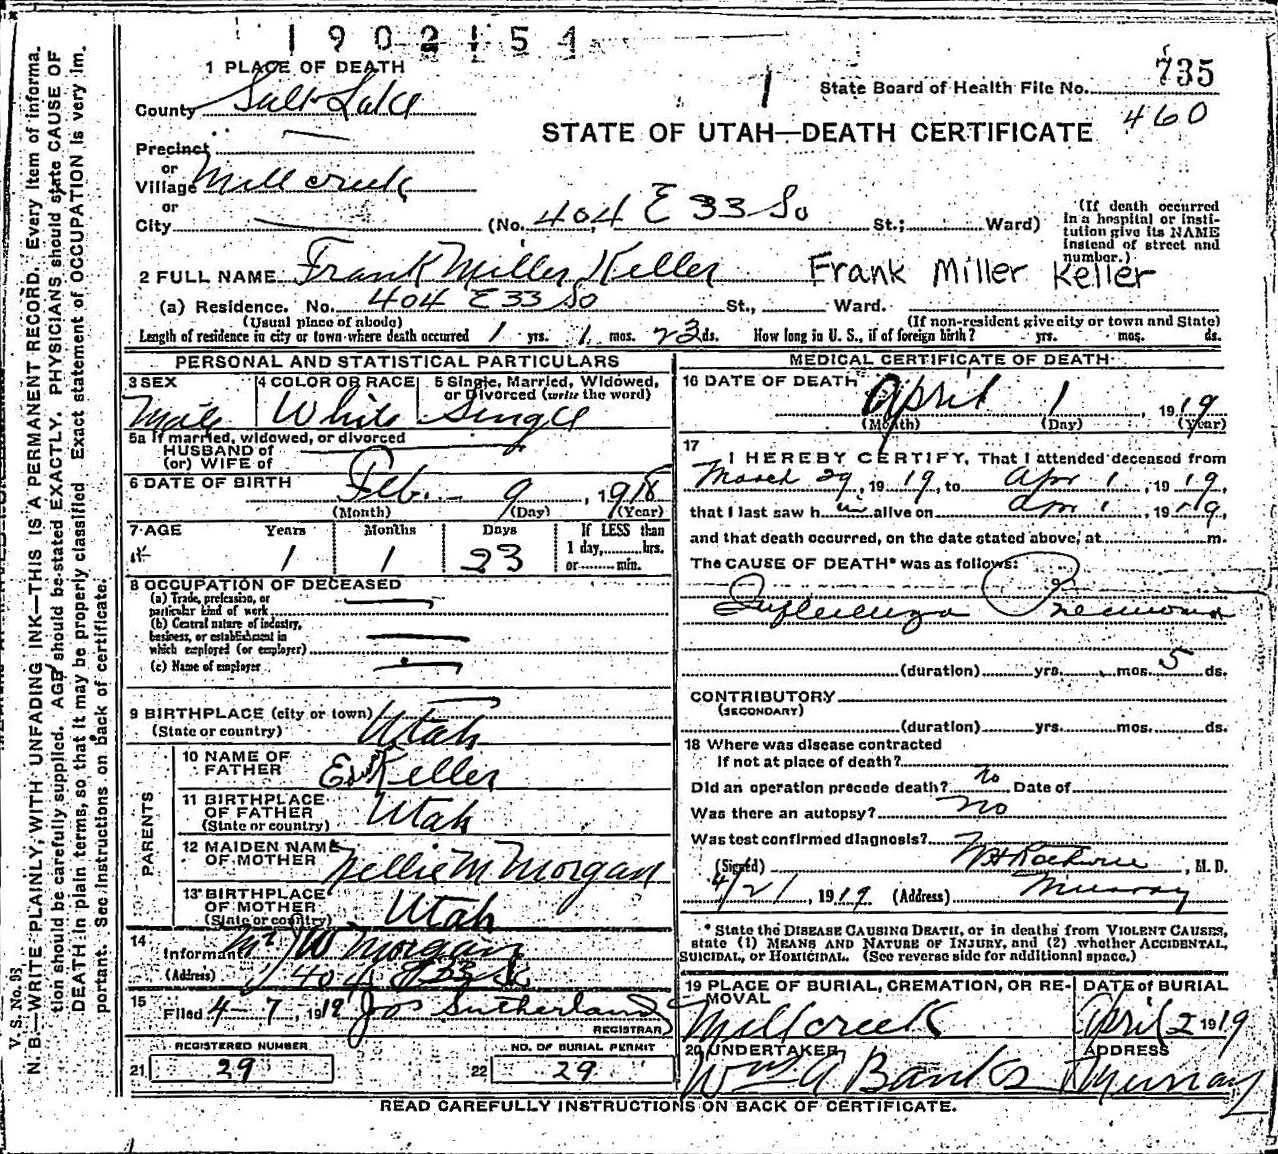 1902154
1 PLACE OF DEATH
County Salt Lake
State Board of Health File No. 735
460
STATE OF UTAH—DEATH CERTIFICATE
Precinct —
or
Village Mill creek
or
City —
(No. 404 E 33 So St.; Ward)
(If death occurred in a hospital or institution give its NAME instead of street and number.)
2 FULL NAME Frank Miller Keller Frank Miller Keller
(a) Residence. No. 404 E 33 So St., Ward.
(Usual place of abode) (If non-resident give city or town and State)
Length of residence in city or town where death occurred 1 yrs. 1 mos. 23 ds. How long in U. S., if of foreign birth? yrs. mos. ds.
PERSONAL AND STATISTICAL PARTICULARS
3 SEX Male
4 COLOR OR RACE White
5 Single, Married, Widowed, or Divorced (write the word) Single
5a If married, widowed, or divorced
HUSBAND of
(or) WIFE of
6 DATE OF BIRTH Feb. 9, 1918
(Month) (Day) (Year)
7 AGE Years Months Days If LESS than
1 1 23 1 day,......hrs.
or......min.
8 OCCUPATION OF DECEASED
(a) Trade, profession, or
particular kind of work —
(b) General nature of industry,
business, or establishment in
which employed (or employer) —
(c) Name of employer —
9 BIRTHPLACE (city or town)
(State or country) Utah
PARENTS
10 NAME OF FATHER Ed Keller
11 BIRTHPLACE OF FATHER
(State or country) Utah
12 MAIDEN NAME OF MOTHER Nellie M Morgan
13 BIRTHPLACE OF MOTHER
(State or country) Utah
14
Informant W Morgan
(Address) 404 E 33 So
15
Filed 4-7, 1919 Jos Sutherland
REGISTRAR
REGISTERED NUMBER
21 29
NO. OF BURIAL PERMIT
22 29
MEDICAL CERTIFICATE OF DEATH
16 DATE OF DEATH April 1, 1919
(Month) (Day) (Year)
17
I HEREBY CERTIFY, That I attended deceased from
March 29, 1919, to Apr 1, 1919,
that I last saw h im alive on Apr 1, 1919,
and that death occurred, on the date stated above, at m.
The CAUSE OF DEATH* was as follows:
Influenza Pneumonia
(duration) yrs. mos. 5 ds.
CONTRIBUTORY
(SECONDARY)
(duration) yrs. mos. ds.
18 Where was disease contracted
If not at place of death?
Did an operation precede death? no Date of
Was there an autopsy? no
Was test confirmed diagnosis?
(Signed) , M. D.
4/21, 1919. (Address) Murray
* State the DISEASE CAUSING DEATH, or in deaths from VIOLENT CAUSES,
state (1) MEANS AND NATURE OF INJURY, and (2) whether ACCIDENTAL,
SUICIDAL, or HOMICIDAL. (See reverse side for additional space.)
19 PLACE OF BURIAL, CREMATION, OR REMOVAL
Millcreek
DATE of BURIAL
April 2 1919
20 UNDERTAKER
Wm A Banks
ADDRESS
Murray
READ CAREFULLY INSTRUCTIONS ON BACK OF CERTIFICATE.
V. S. No. 98
N. B.—WRITE PLAINLY, WITH UNFADING INK—THIS IS A PERMANENT RECORD. Every item of informa-
tion should be carefully supplied. AGE should be stated EXACTLY. PHYSICIANS should state CAUSE OF
DEATH in plain terms, so that it may be properly classified. Exact statement of OCCUPATION is very im-
portant. See instructions on back of certificate.